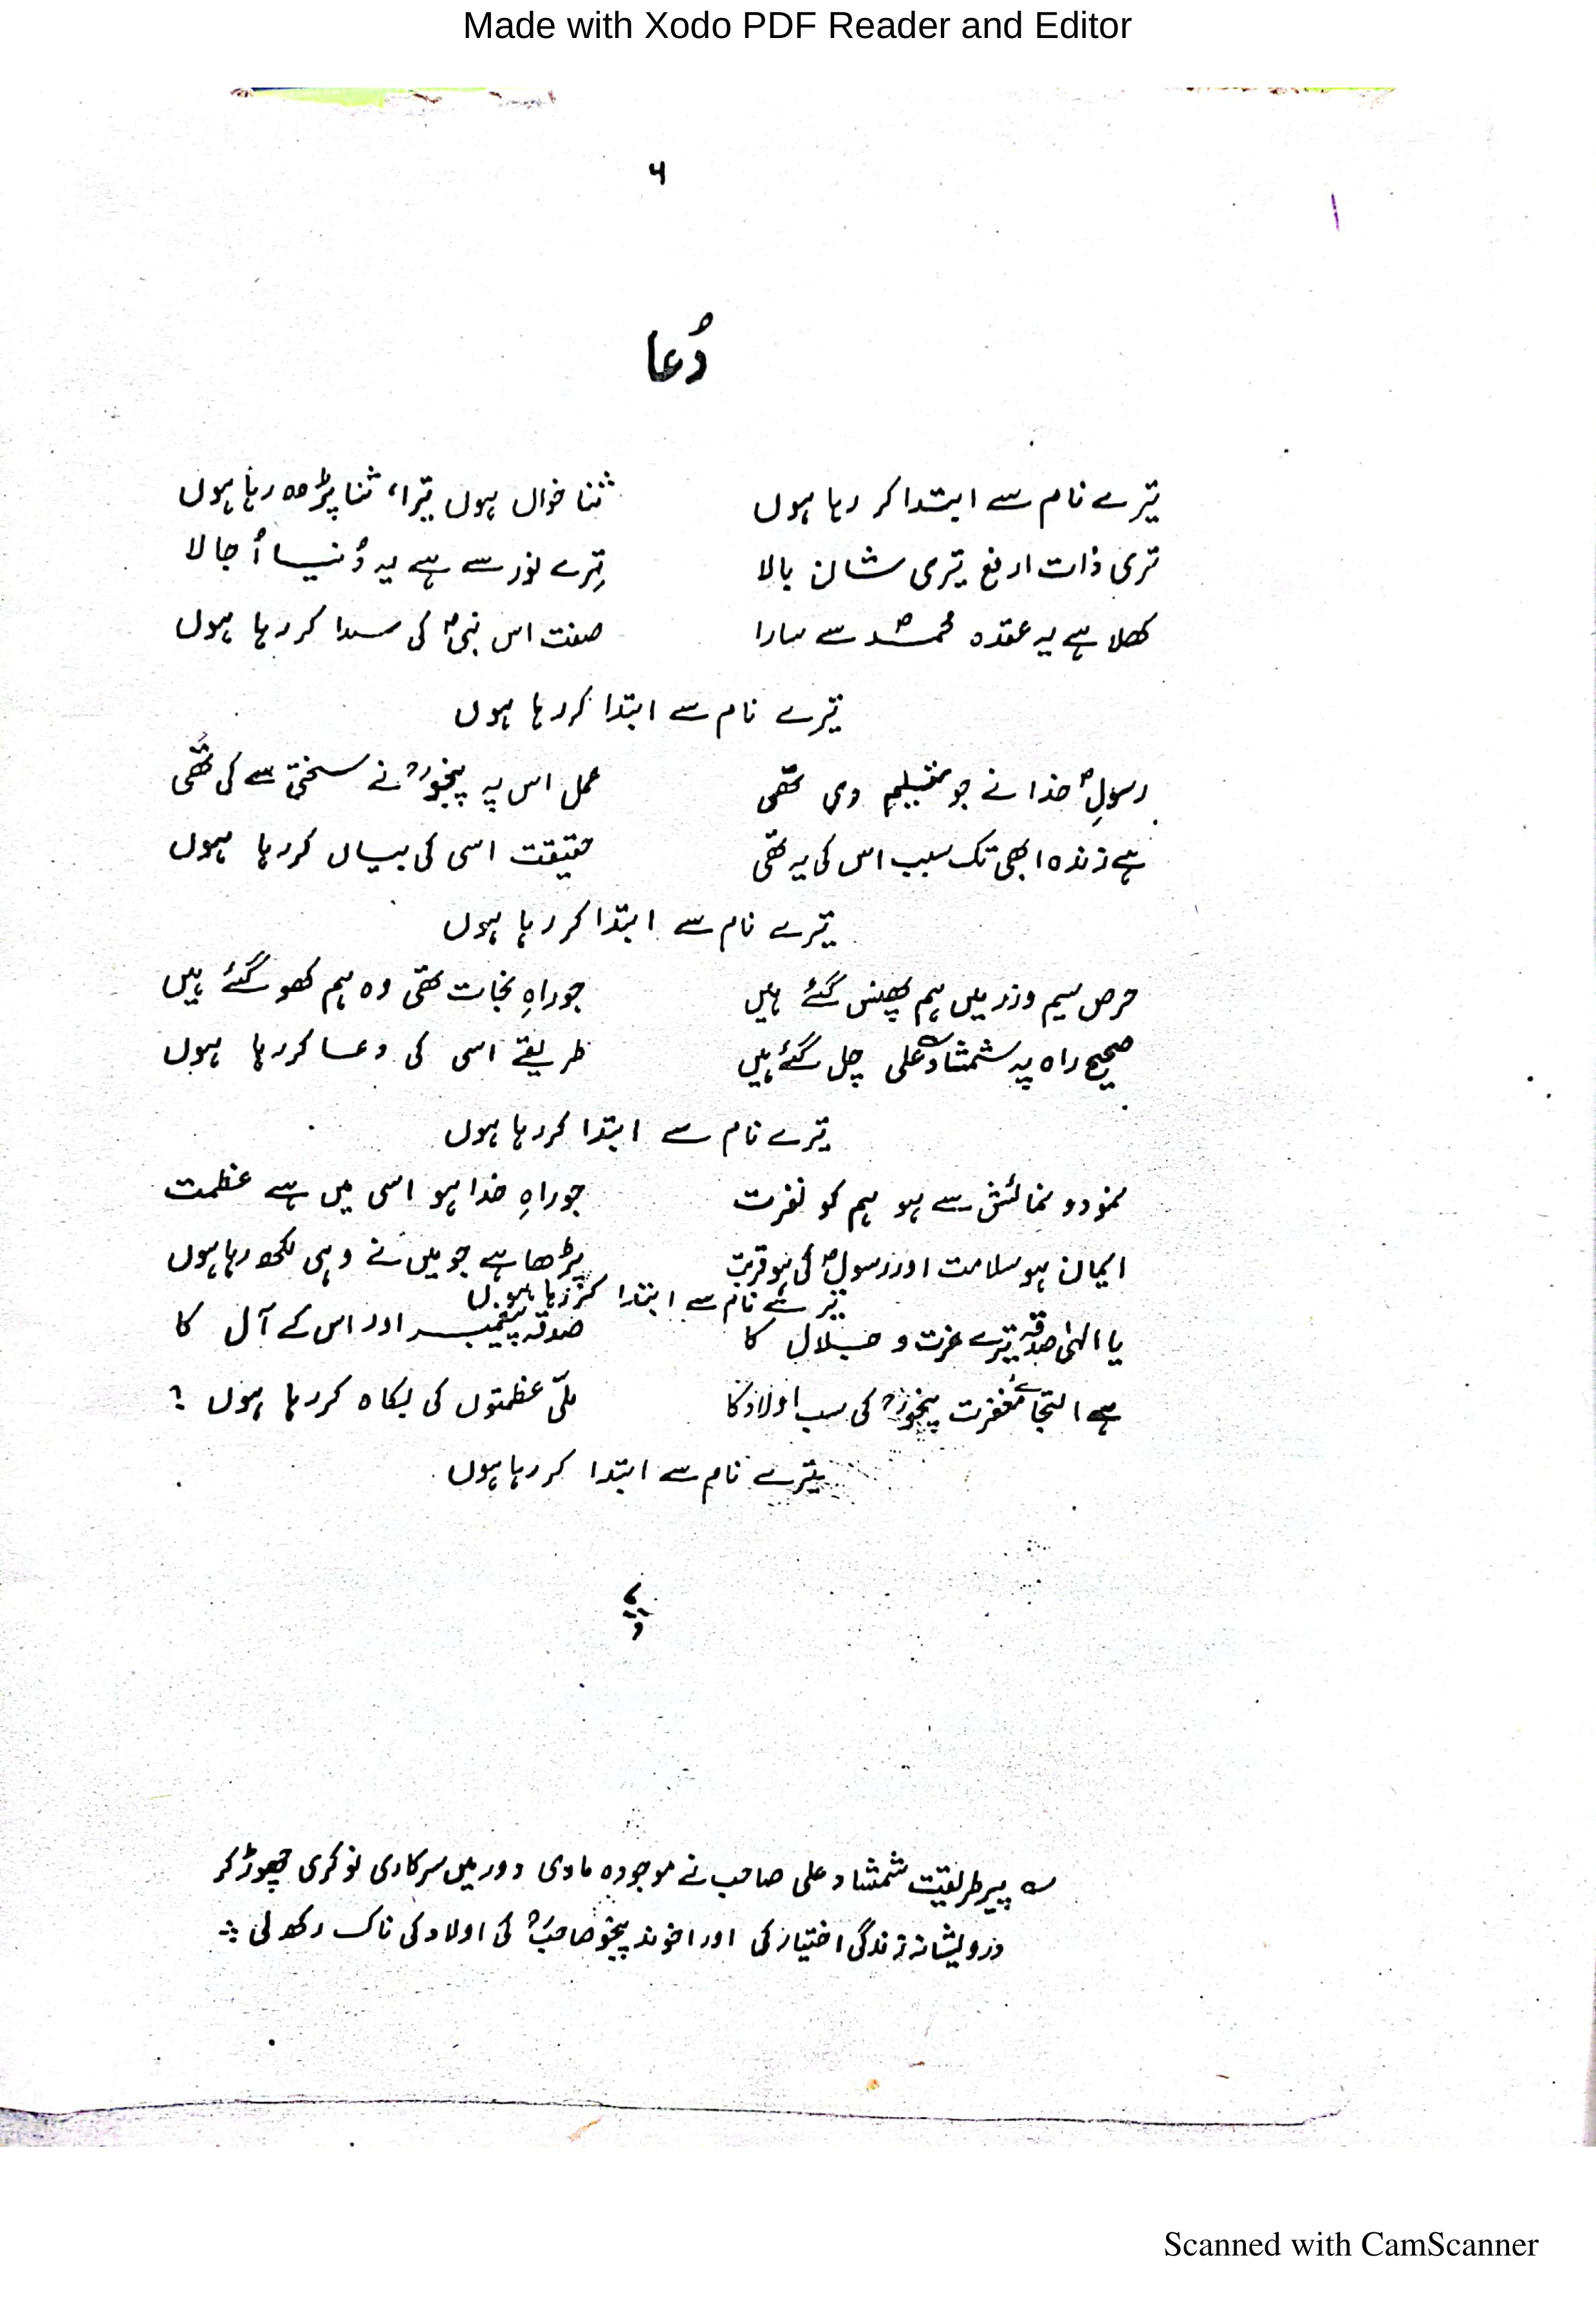 Made with Xodo PDF Reader and Editor
۶
دُعا
تیرے نام سے ابتدا کر رہا ہوں ثنا خواں ہوں تیرا، ثنا پڑھ رہا ہوں
تری ذات ارفع تیری شان بالا تِرے نور سے ہے یہ دُنیا اُجالا
کھلا ہے یہ عقدہ محمدؐ سے سارا صفت اس نبیؐ کی سدا کر رہا ہوں
تیرے نام سے ابتدا کر رہا ہوں
رسولِؐ خدا نے جو تعلیم دی تھی عمل اس پہ پنجوؒ نے سختی سے کی تھی
ہے زندہ ابھی تک سبب اس کی یہ تھی حقیقت اسی کی بیاں کر رہا ہوں
تیرے نام سے ابتدا کر رہا ہوں
حرص سیم و زر میں ہم پھنس گئے ہیں جو راہِ نجات تھی وہ ہم کھو گئے ہیں
صحیح راہ پہ شمشاد علی چل گئے ہیں طریقے اسی کی دعا کر رہا ہوں
تیرے نام سے ابتدا کر رہا ہوں
نمود و نمائش سے ہو ہم کو نفرت جو راہِ خدا ہو اسی میں ہے عظمت
ایمان ہو سلامت اور رسولؐ کی ہو قربت پڑھا ہے جو میں نے وہی لکھ رہا ہوں
تیرے نام سے ابتدا کر رہا ہوں
یا الہٰی صدقہ تیرے عزت و جلال کا صدقہ پیغمبر اور اس کے آل کا
ہے التجائے مغفرت پنجوؒ کی سب اولاد کا ملّی عظمتوں کی بکاہ کر رہا ہوں ؟
تیرے نام سے ابتدا کر رہا ہوں
؎ پیر طریقت شمشاد علی صاحب نے موجودہ مادی دور میں سرکاری نوکری چھوڑ کر
درویشانہ زندگی اختیار کی اور اخوند پنجو صاحبؒ کی اولاد کی ناک رکھ لی
Scanned with CamScanner